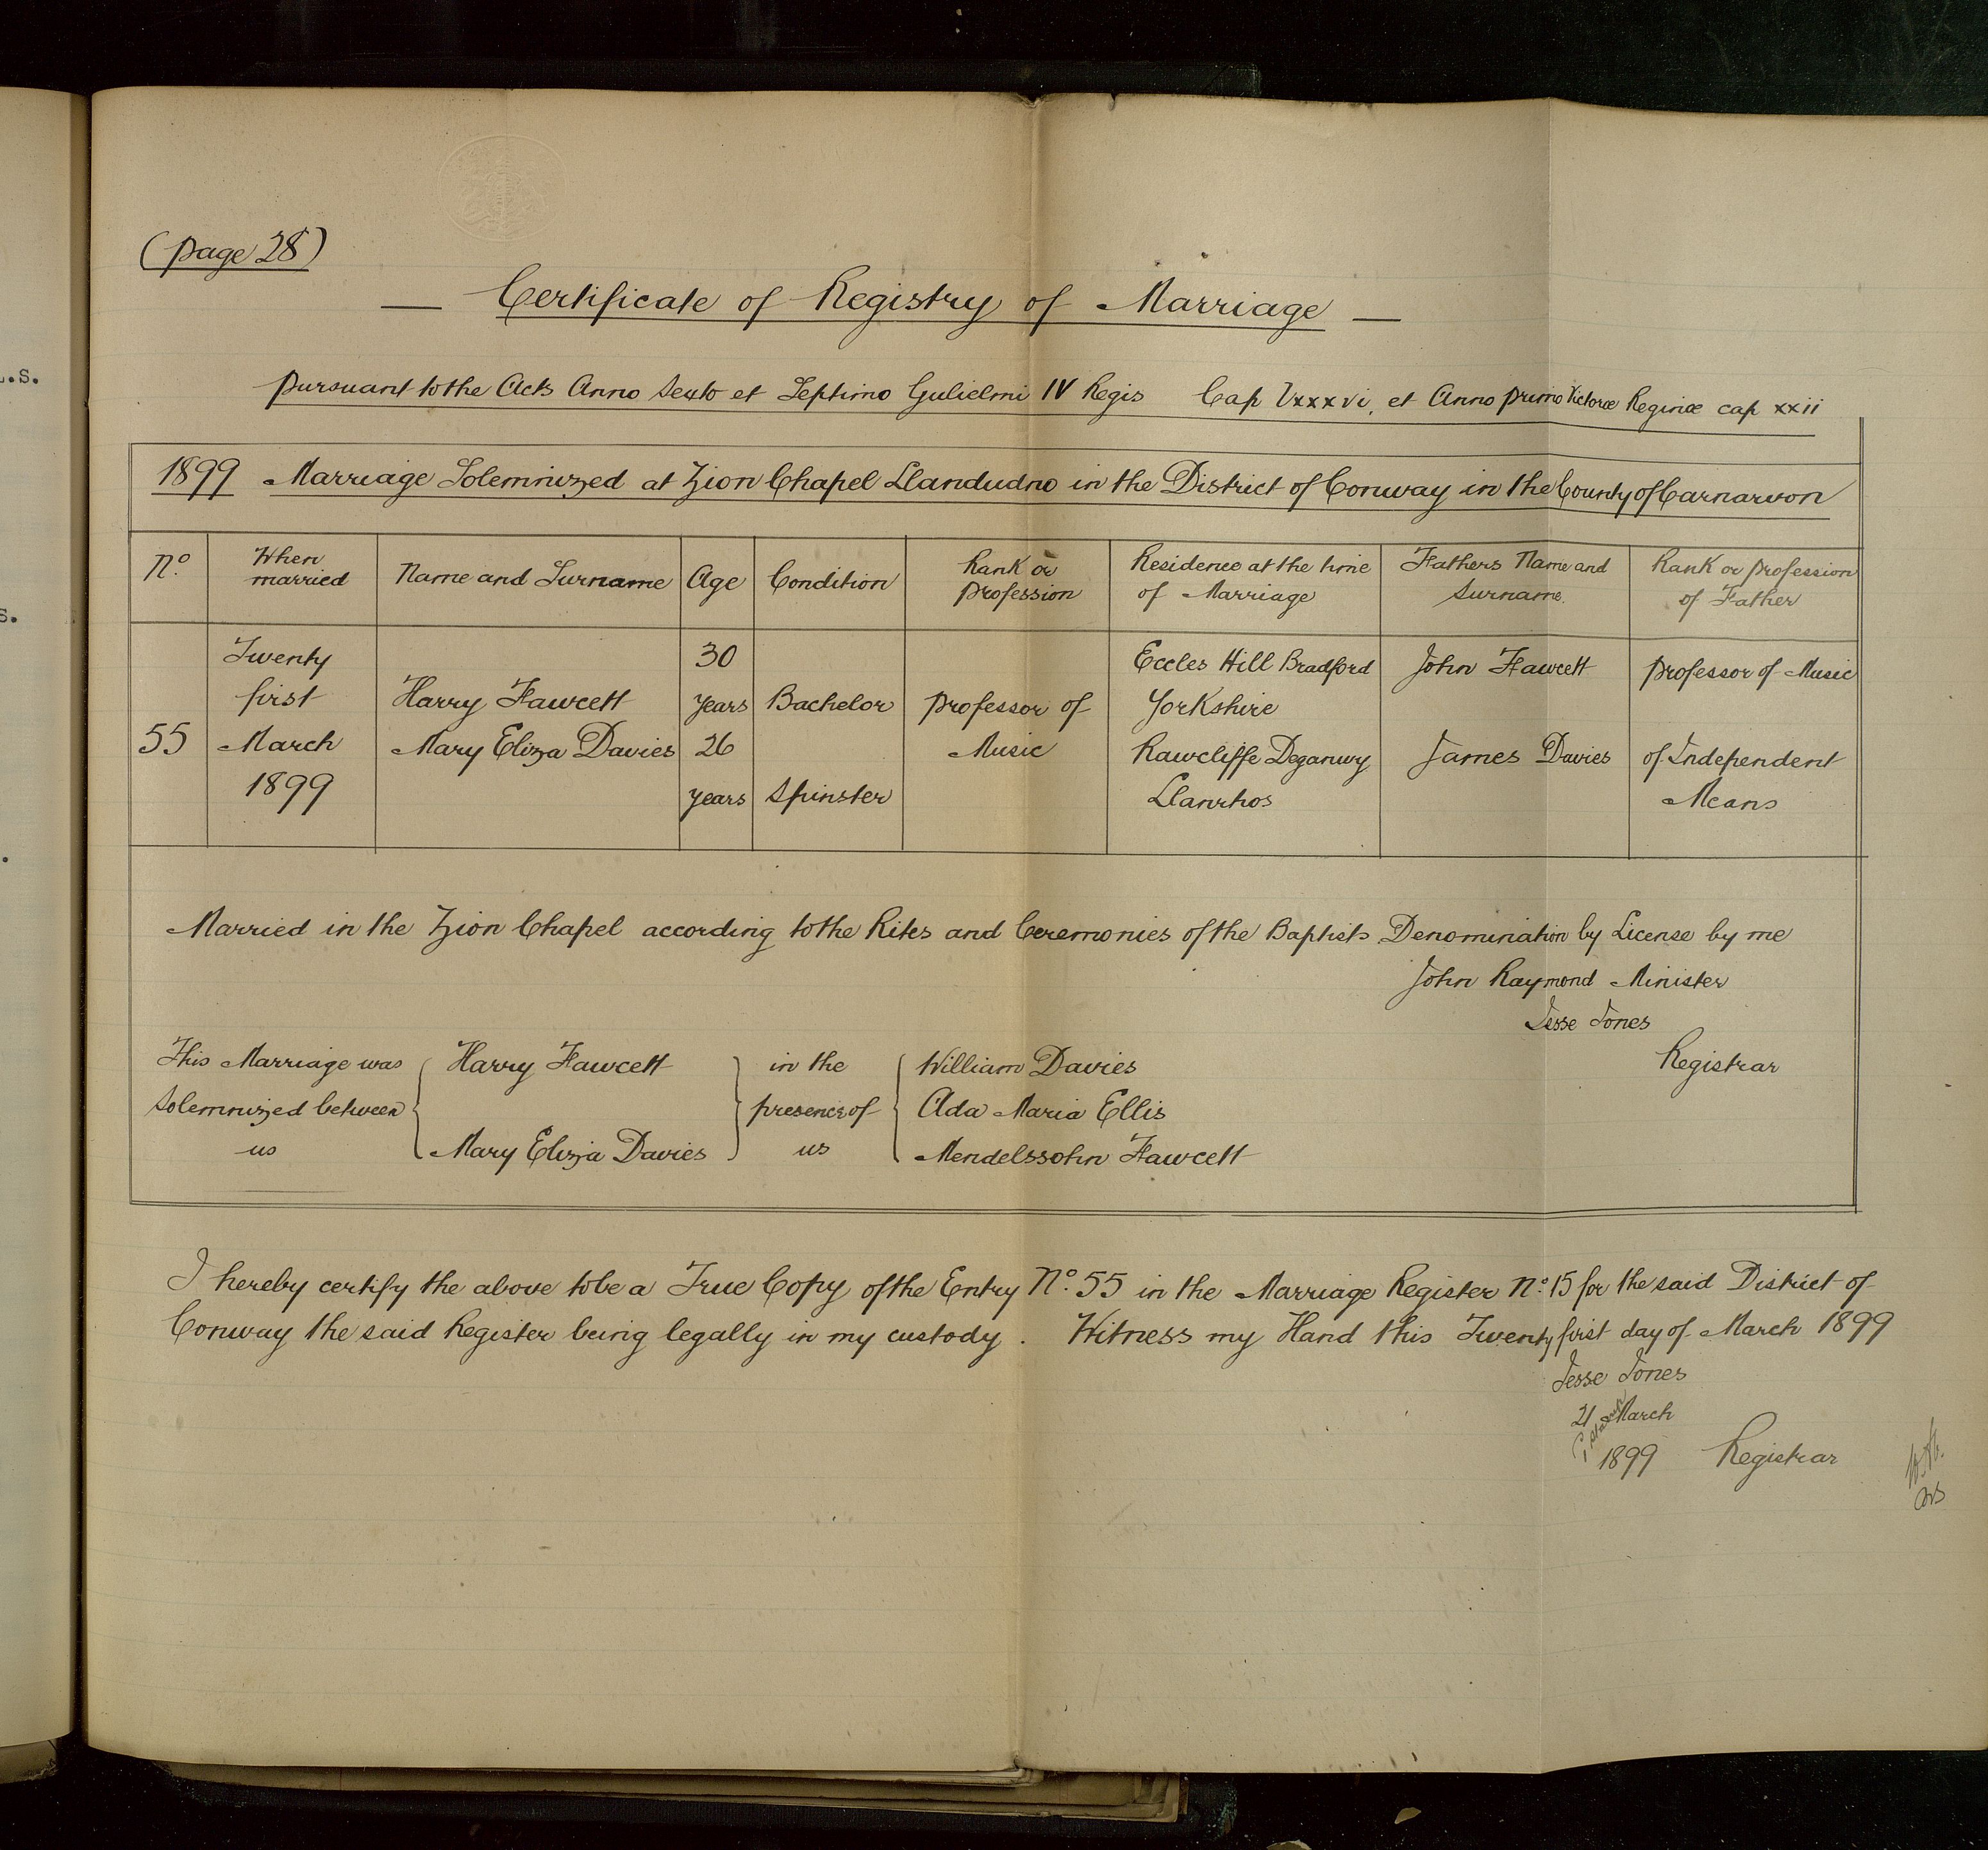 (page 28)
Certificate of Registry of Marriage
pursuant to the Acts Anno Sexto et Septimo Gulielmi IV Regis Cap lxxxvi, et Anno primo Victoræ Reginæ cap xxii
1899 Marriage Solemnized at Zion Chapel Llandudno in the District of Conway in the County of Carnarvon
No. When married Name and Surname Age Condition Rank or profession Residence at the time of Marriage Fathers Name and Surname. Rank or profession of Father
Twenty 30 Eccles Hill Bradford John Fawcett professor of Music
first Harry Fawcett years Bachelor professor of Yorkshire
55 March Mary Eliza Davies 26 Music Rawcliffe Deganwy James Davies of Independent
1899 years Spinster Llanrhos Means
Married in the Zion Chapel according to the Rites and Ceremonies of the Baptists Denomination by License by me
John Raymond Minister
Jesse Jones
Registrar
This Marriage was Harry Fawcett in the William Davies
Solemnized between presence of Ada Maria Ellis
us Mary Eliza Davies us Mendelssohn Fawcett
I hereby certify the above to be a True Copy of the Entry No. 55 in the Marriage Register No. 15 for the said District of
Conway the said Register being legally in my custody. Witness my Hand this Twenty first day of March 1899
Jesse Jones
21 March
1899 Registrar
L.S.
s.